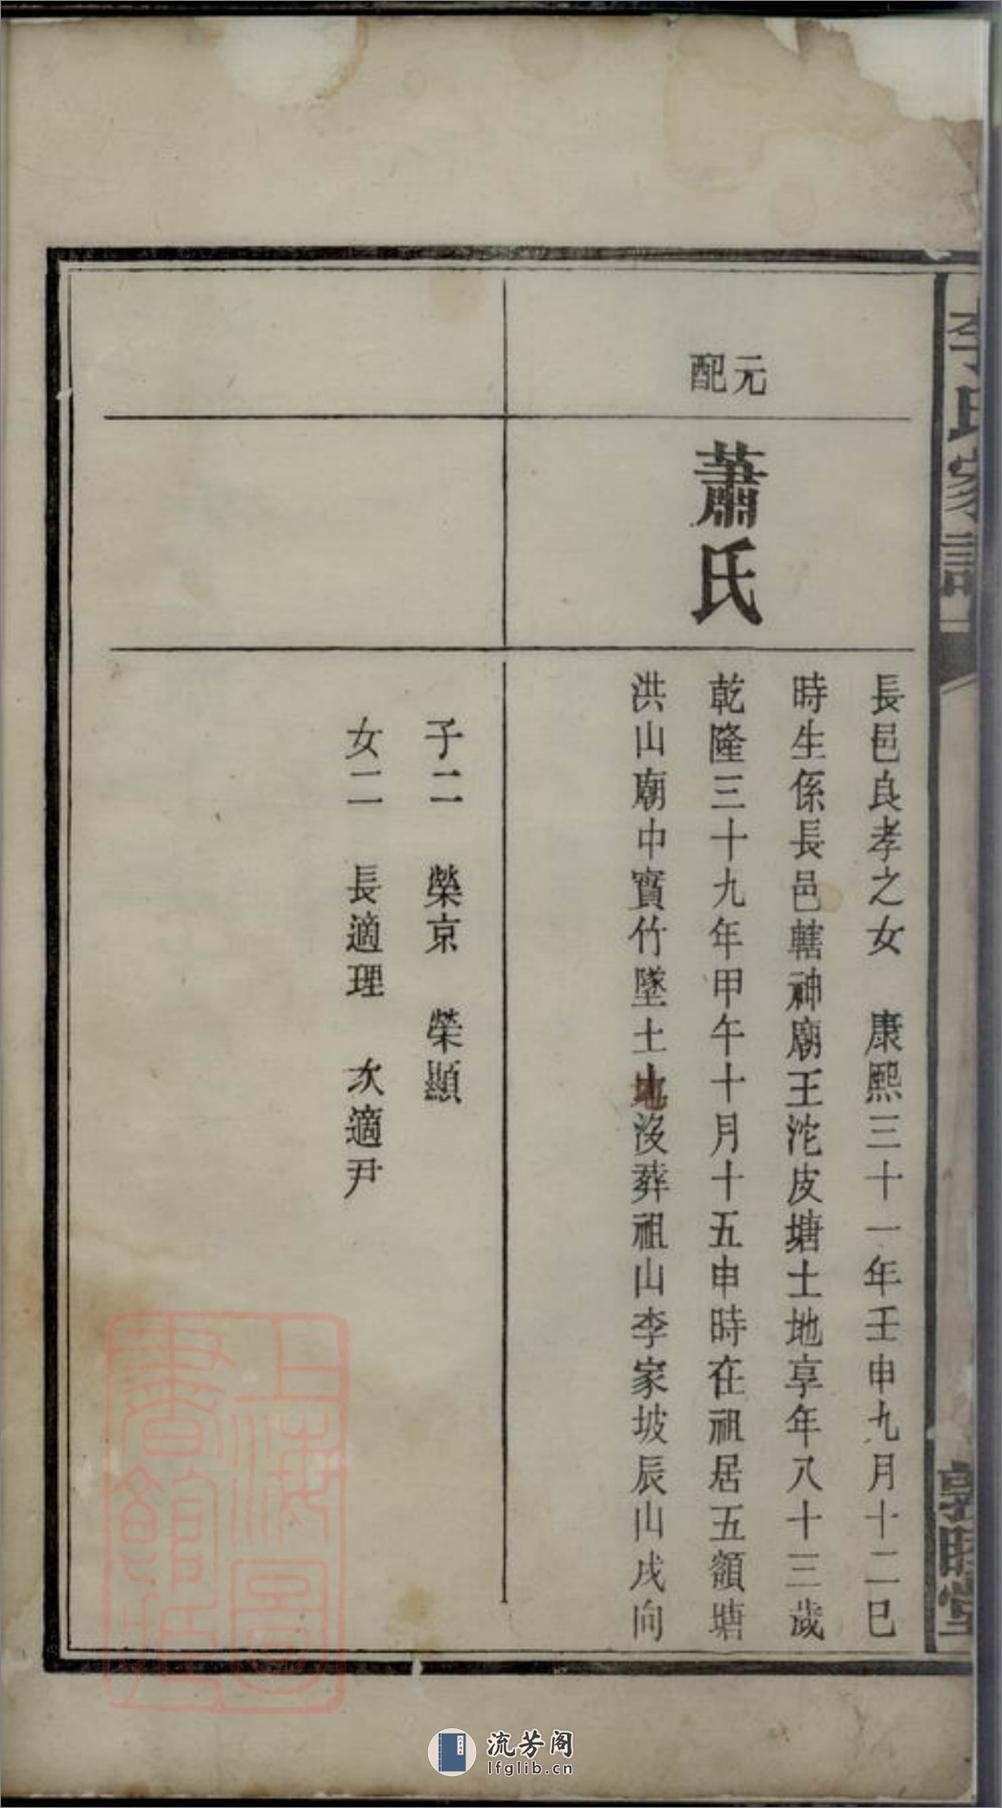 李氏家譜
敦睦堂
元配
蕭氏
長邑良孝之女　康熙三十一年壬申九月十二巳
時生係長邑轄神廟王沱皮塘土地享年八十三歲
乾隆三十九年甲午十月十五申時在祖居五額塘
洪山廟中實竹墜土地沒葬祖山李家坡辰山戌向
子二　榮京　榮顯
女二　長適理　次適尹
上海圖書館藏
流芳阁
lfglib.cn